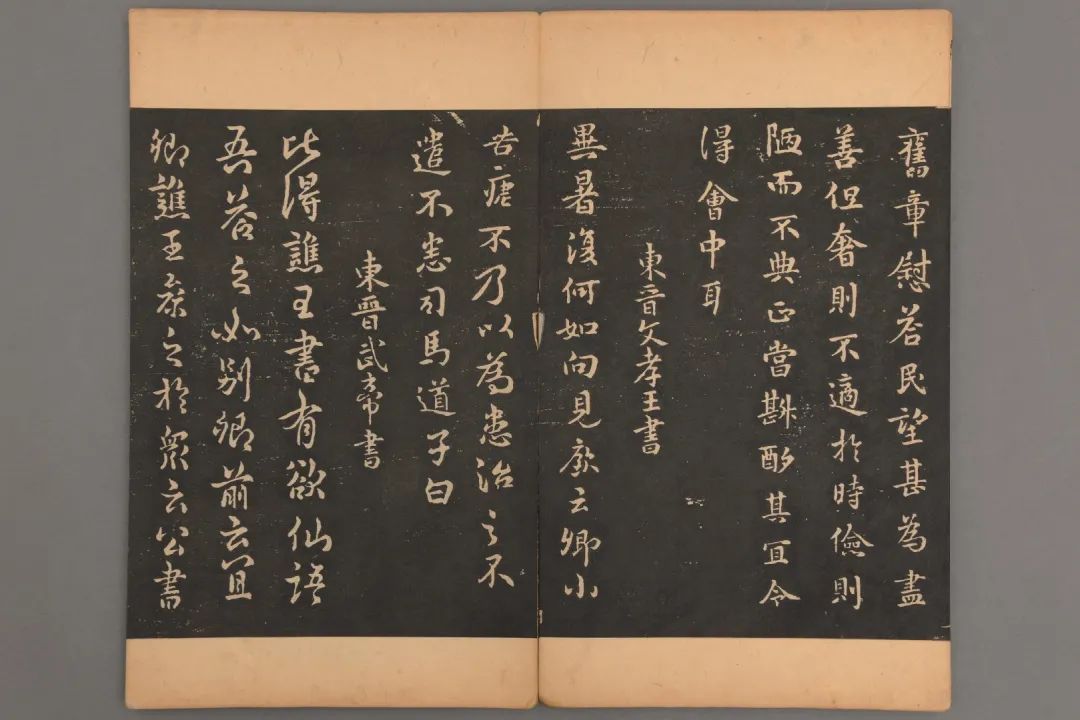 舊章慰答民望甚為盡
善但奢則不適於時儉則
陋而不典正當斟酌其宜令
得會中耳
東晉文孝王書
異暑復何如向見康云卿小
苦瘧不乃以為患治之不
遣不悉司馬道子白
東晉武帝書
比得譙王書有欲仙語
吾答之如別卿前云宜
卿譙王康之於眾云公書